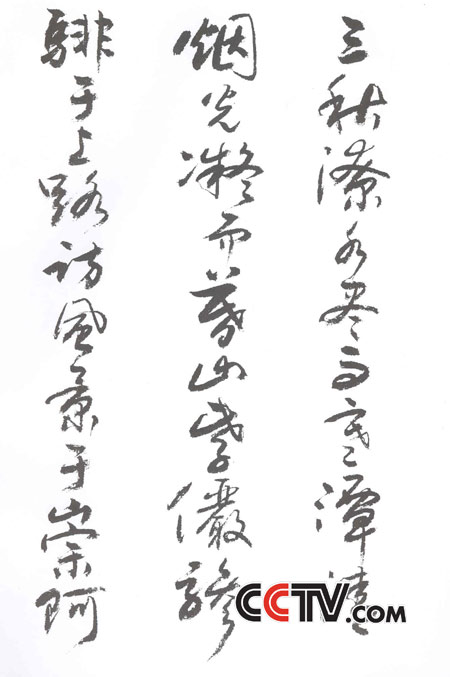 三秋潦水尽而寒潭清
烟光凝而暮山紫儼驂
騑于上路訪風景于崇阿
CCTV.COM